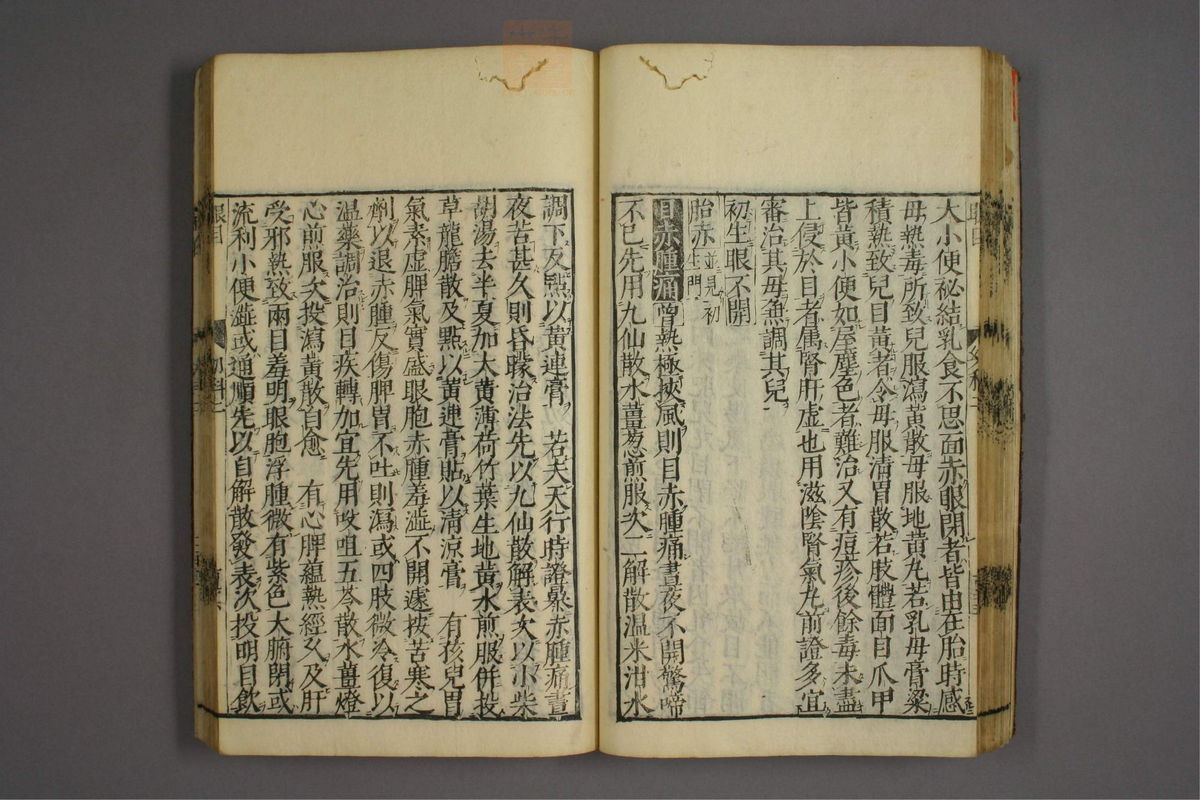 大小便秘結乳食不思面赤眼閉者皆由在胎時感
母熱毒所致兒服瀉黃散母服地黃丸若乳母膏粱
積熱致兒目黃者令母服清胃散若肢體面目爪甲
皆黃小便如屋塵色者難治又有痘疹後餘毒未盡
上侵於目者属腎肝虛也用滋陰腎氣丸前證多宜
審治其母魚調其兒
初生眼不開
胎赤並見初生門
目赤腫痛曾熱極挾風則目赤腫痛晝夜不開驚啼
不已先用九仙散水薑葱煎服次二解散温米泔水
調下及㸃以黃連膏 若夫天行時證㬥赤腫痛晝
夜苦甚久則昏矇治法先以九仙散解表次以小柴
胡湯去半夏加大黃薄荷竹葉生地黃水煎服併投
草龍膽散及㸃以黃連膏貼以清涼膏 有孩兒胃
氣素虛脾氣實盛眼胞赤腫羞澁不開遽投苦寒之
劑以退赤腫反傷脾胃不吐則瀉或四肢微冷復以
温藥調治則目疾轉加宜先用㕮咀五苓散水薑燈
心煎服次投瀉黃散自愈 有心脾蘊熱經久及肝
受邪熱致兩目羞明眼胞浮腫微有紫色大腑閉或
流利小便澁或通順先以自解散發表次投明目飲
眼目
幼科二